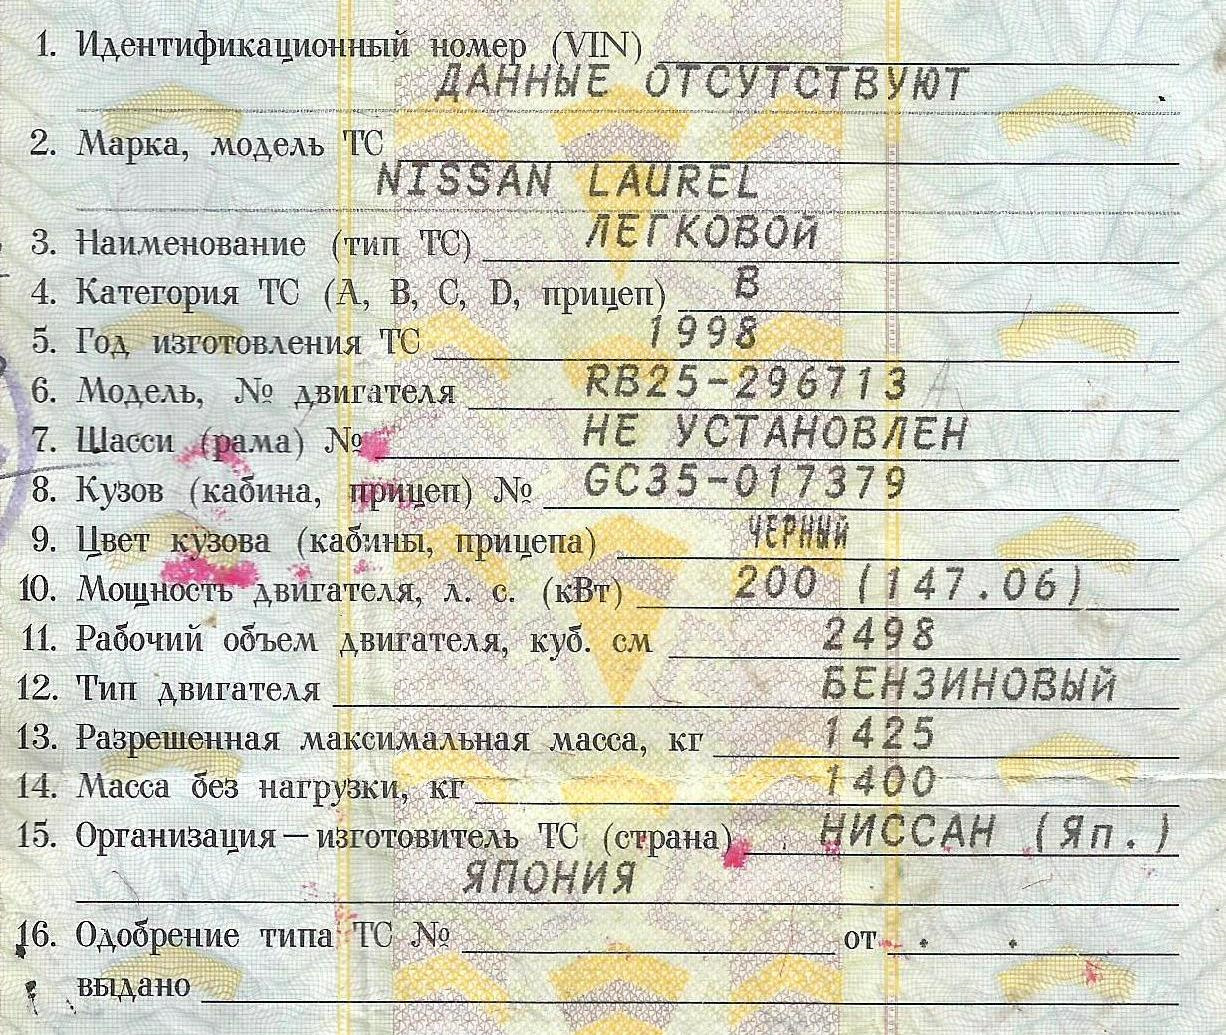 1. Идентификационный номер (VIN)
ДАННЫЕ ОТСУТСТВУЮТ
2. Марка, модель ТС
NISSAN LAUREL
3. Наименование (тип ТС) ЛЕГКОВОЙ
4. Категория ТС (А, В, С, D, прицеп) В
5. Год изготовления ТС 1998
6. Модель, № двигателя RB25-296713
7. Шасси (рама) № НЕ УСТАНОВЛЕН
8. Кузов (кабина, прицеп) № GC35-017379
9. Цвет кузова (кабины, прицепа) ЧЕРНЫЙ
10. Мощность двигателя, л. с. (кВт) 200 (147.06)
11. Рабочий объем двигателя, куб. см 2498
12. Тип двигателя БЕНЗИНОВЫЙ
13. Разрешенная максимальная масса, кг 1425
14. Масса без нагрузки, кг 1400
15. Организация—изготовитель ТС (страна) НИССАН (Яп.)
ЯПОНИЯ
16. Одобрение типа ТС № от . .
выдано